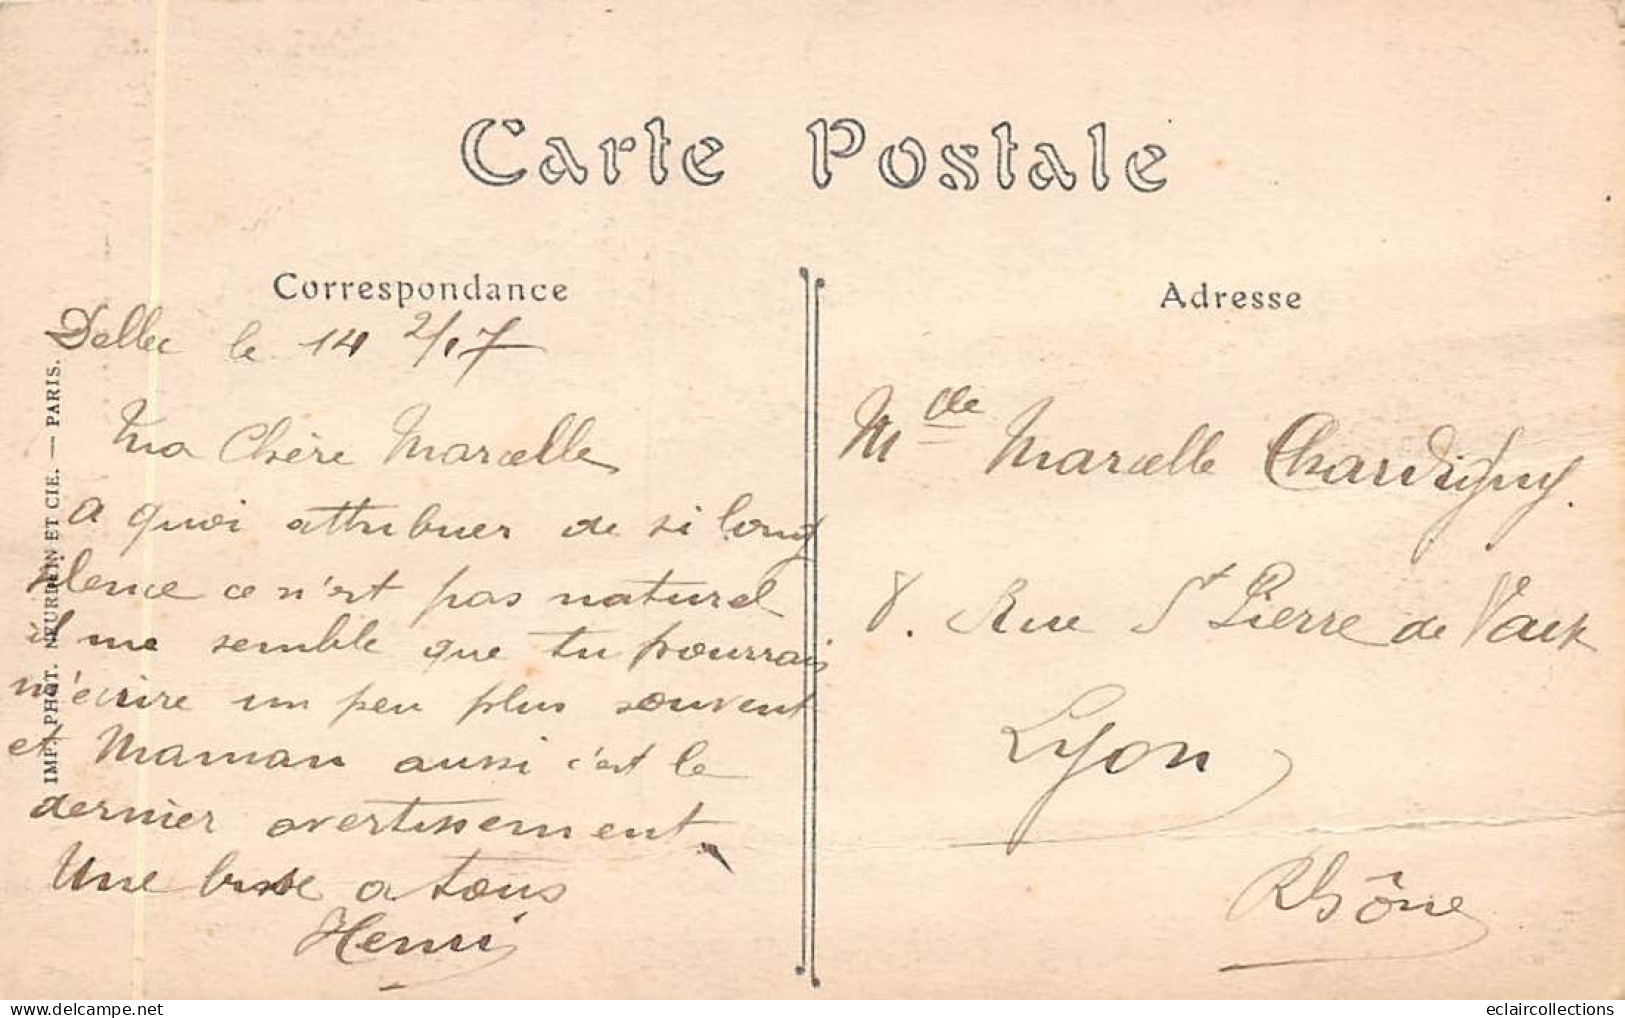 Carte Postale
Correspondance
Adresse
Delle le 14 2/17
Ma Chère Marcelle
a quoi attribuer de si long
silence ce n'est pas naturel
il me semble que tu pourrais
m'écrire un peu plus souvent
et Maman aussi c'est le
dernier avertissement
Une bise a tous
Henri
Mdelle Marcelle Chardigny.
8. Rue St Pierre de Vaix
Lyon
Rhône
IMP. PHOT. NEURDEIN ET CIE. — PARIS.
eclaircollections